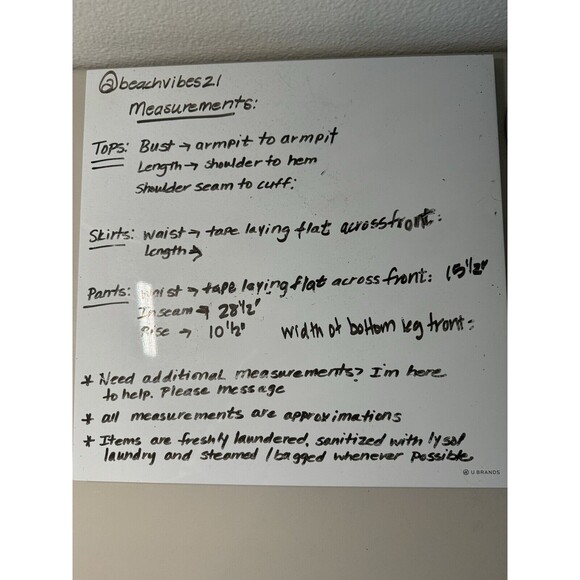 @beachvibes21
Measurements:
Tops: Bust → armpit to armpit
Length → shoulder to hem
Shoulder seam to cuff:
Skirts: Waist → tape laying flat across front:
Length →
Pants: Waist → tape laying flat across front: 15 1/2"
Inseam → 28 1/2"
Rise → 10 1/2" Width of bottom leg front:
* Need additional measurements? I'm here
to help. Please message
* all measurements are approximations
* Items are freshly laundered, sanitized with lysol
laundry and steamed / bagged whenever possible
U BRANDS